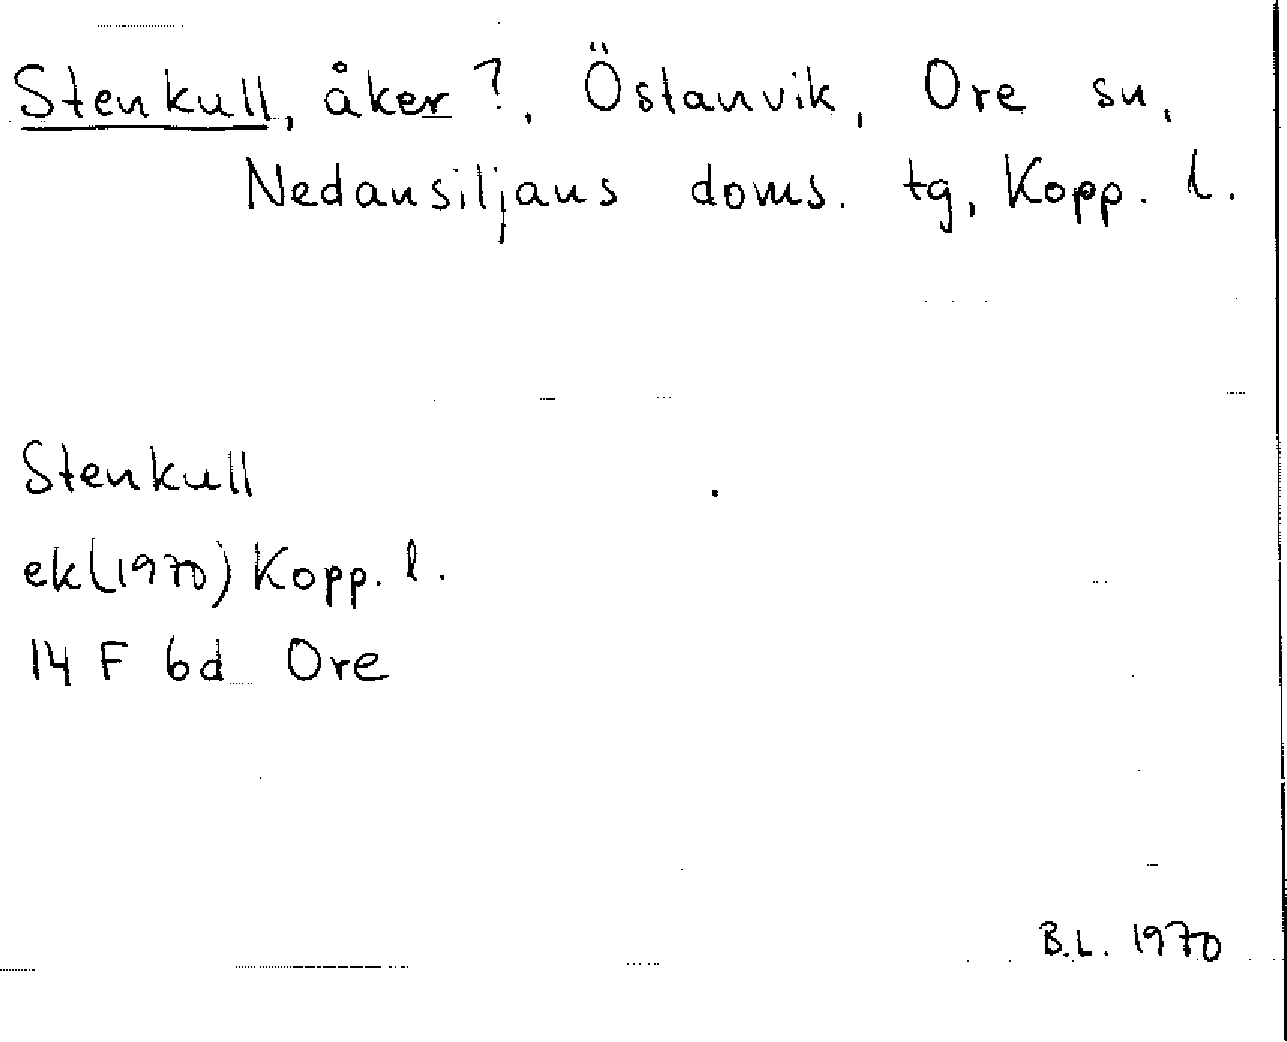 Stenkull, åker?, Östanvik, Ore sn,
Nedansiljans doms. tg, Kopp. l.
Stenkull
ek(1970) Kopp. l.
14 F 6d Ore
B.L. 1970